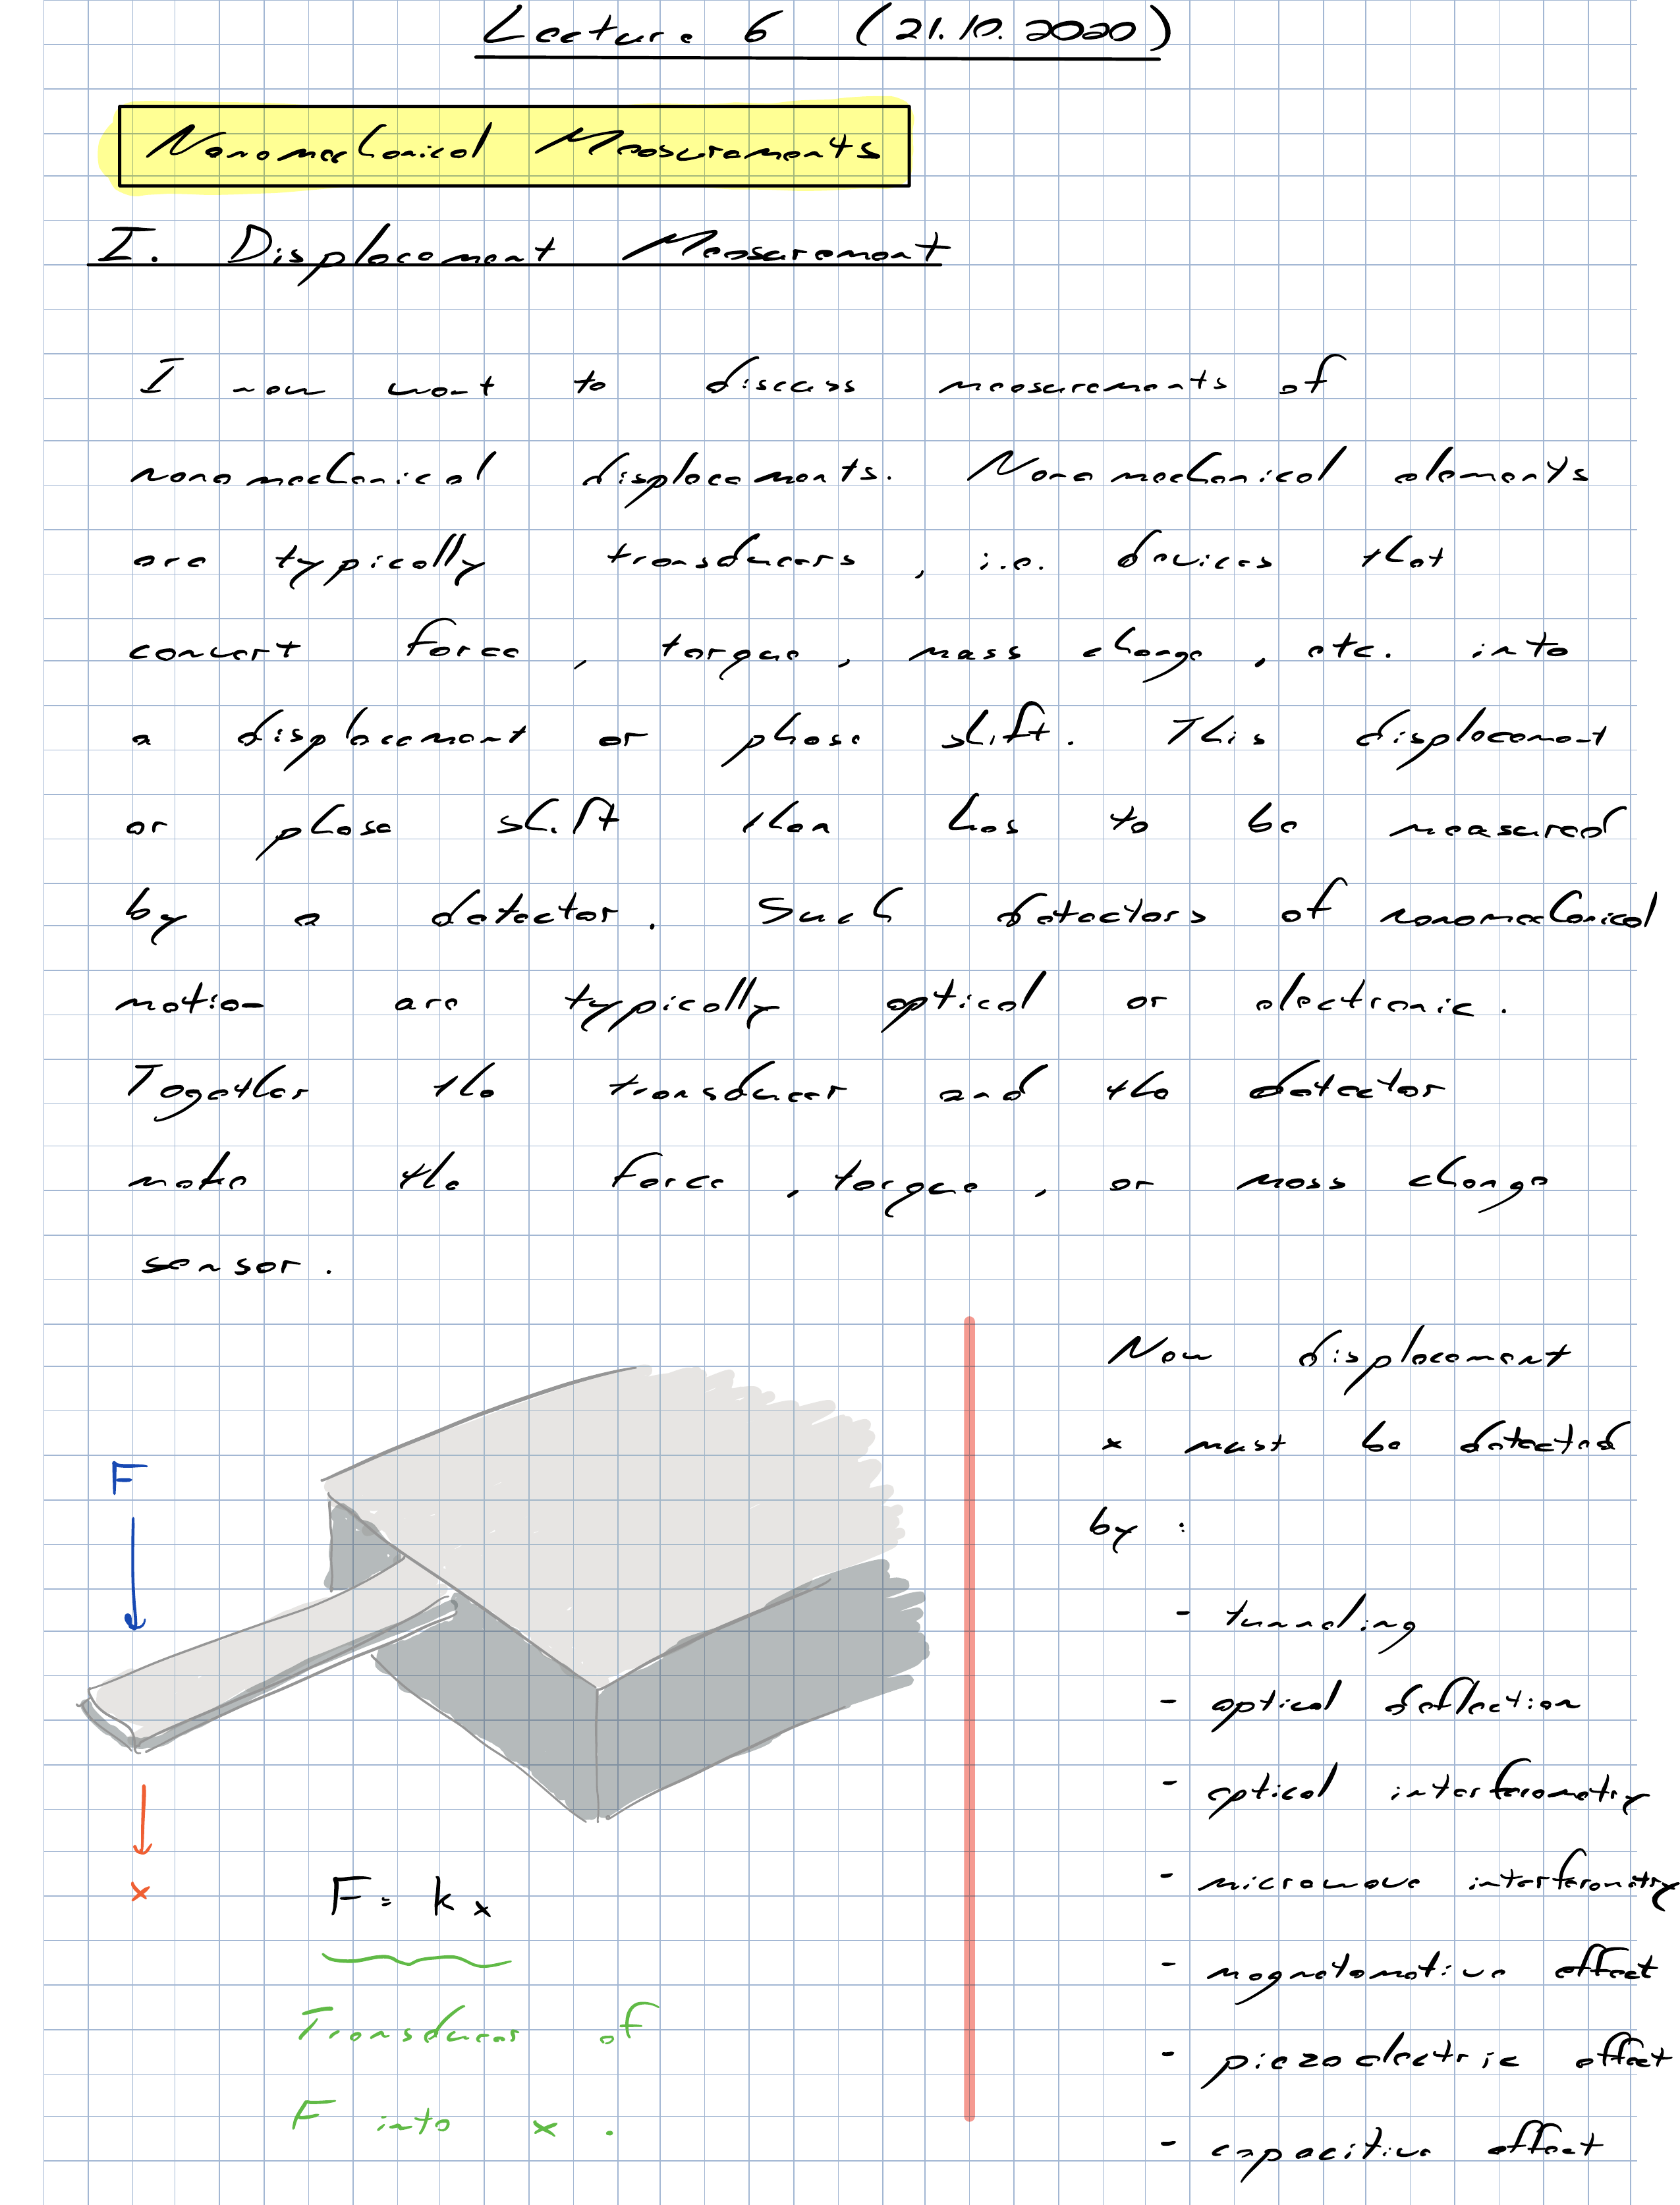 Lecture 6 (21.10.2020)
Nanomechanical Measurements
I. Displacement Measurement
I now want to discuss measurements of
nanomechanical displacements. Nanomechanical elements
are typically transducers, i.e. devices that
convert force, torque, mass change, etc. into
a displacement or phase shift. This displacement
or phase shift then has to be measured
by a detector. Such detectors of nanomechanical
motion are typically optical or electronic.
Together the transducer and the detector
make the force, torque, or mass change
sensor.
F
x
F = kx
Transducer of
F into x.
Now displacement
x must be detected
by:
- tunneling
- optical deflection
- optical interferometry
- microwave interferometry
- magnetomotive effect
- piezoelectric effect
- capacitive effect